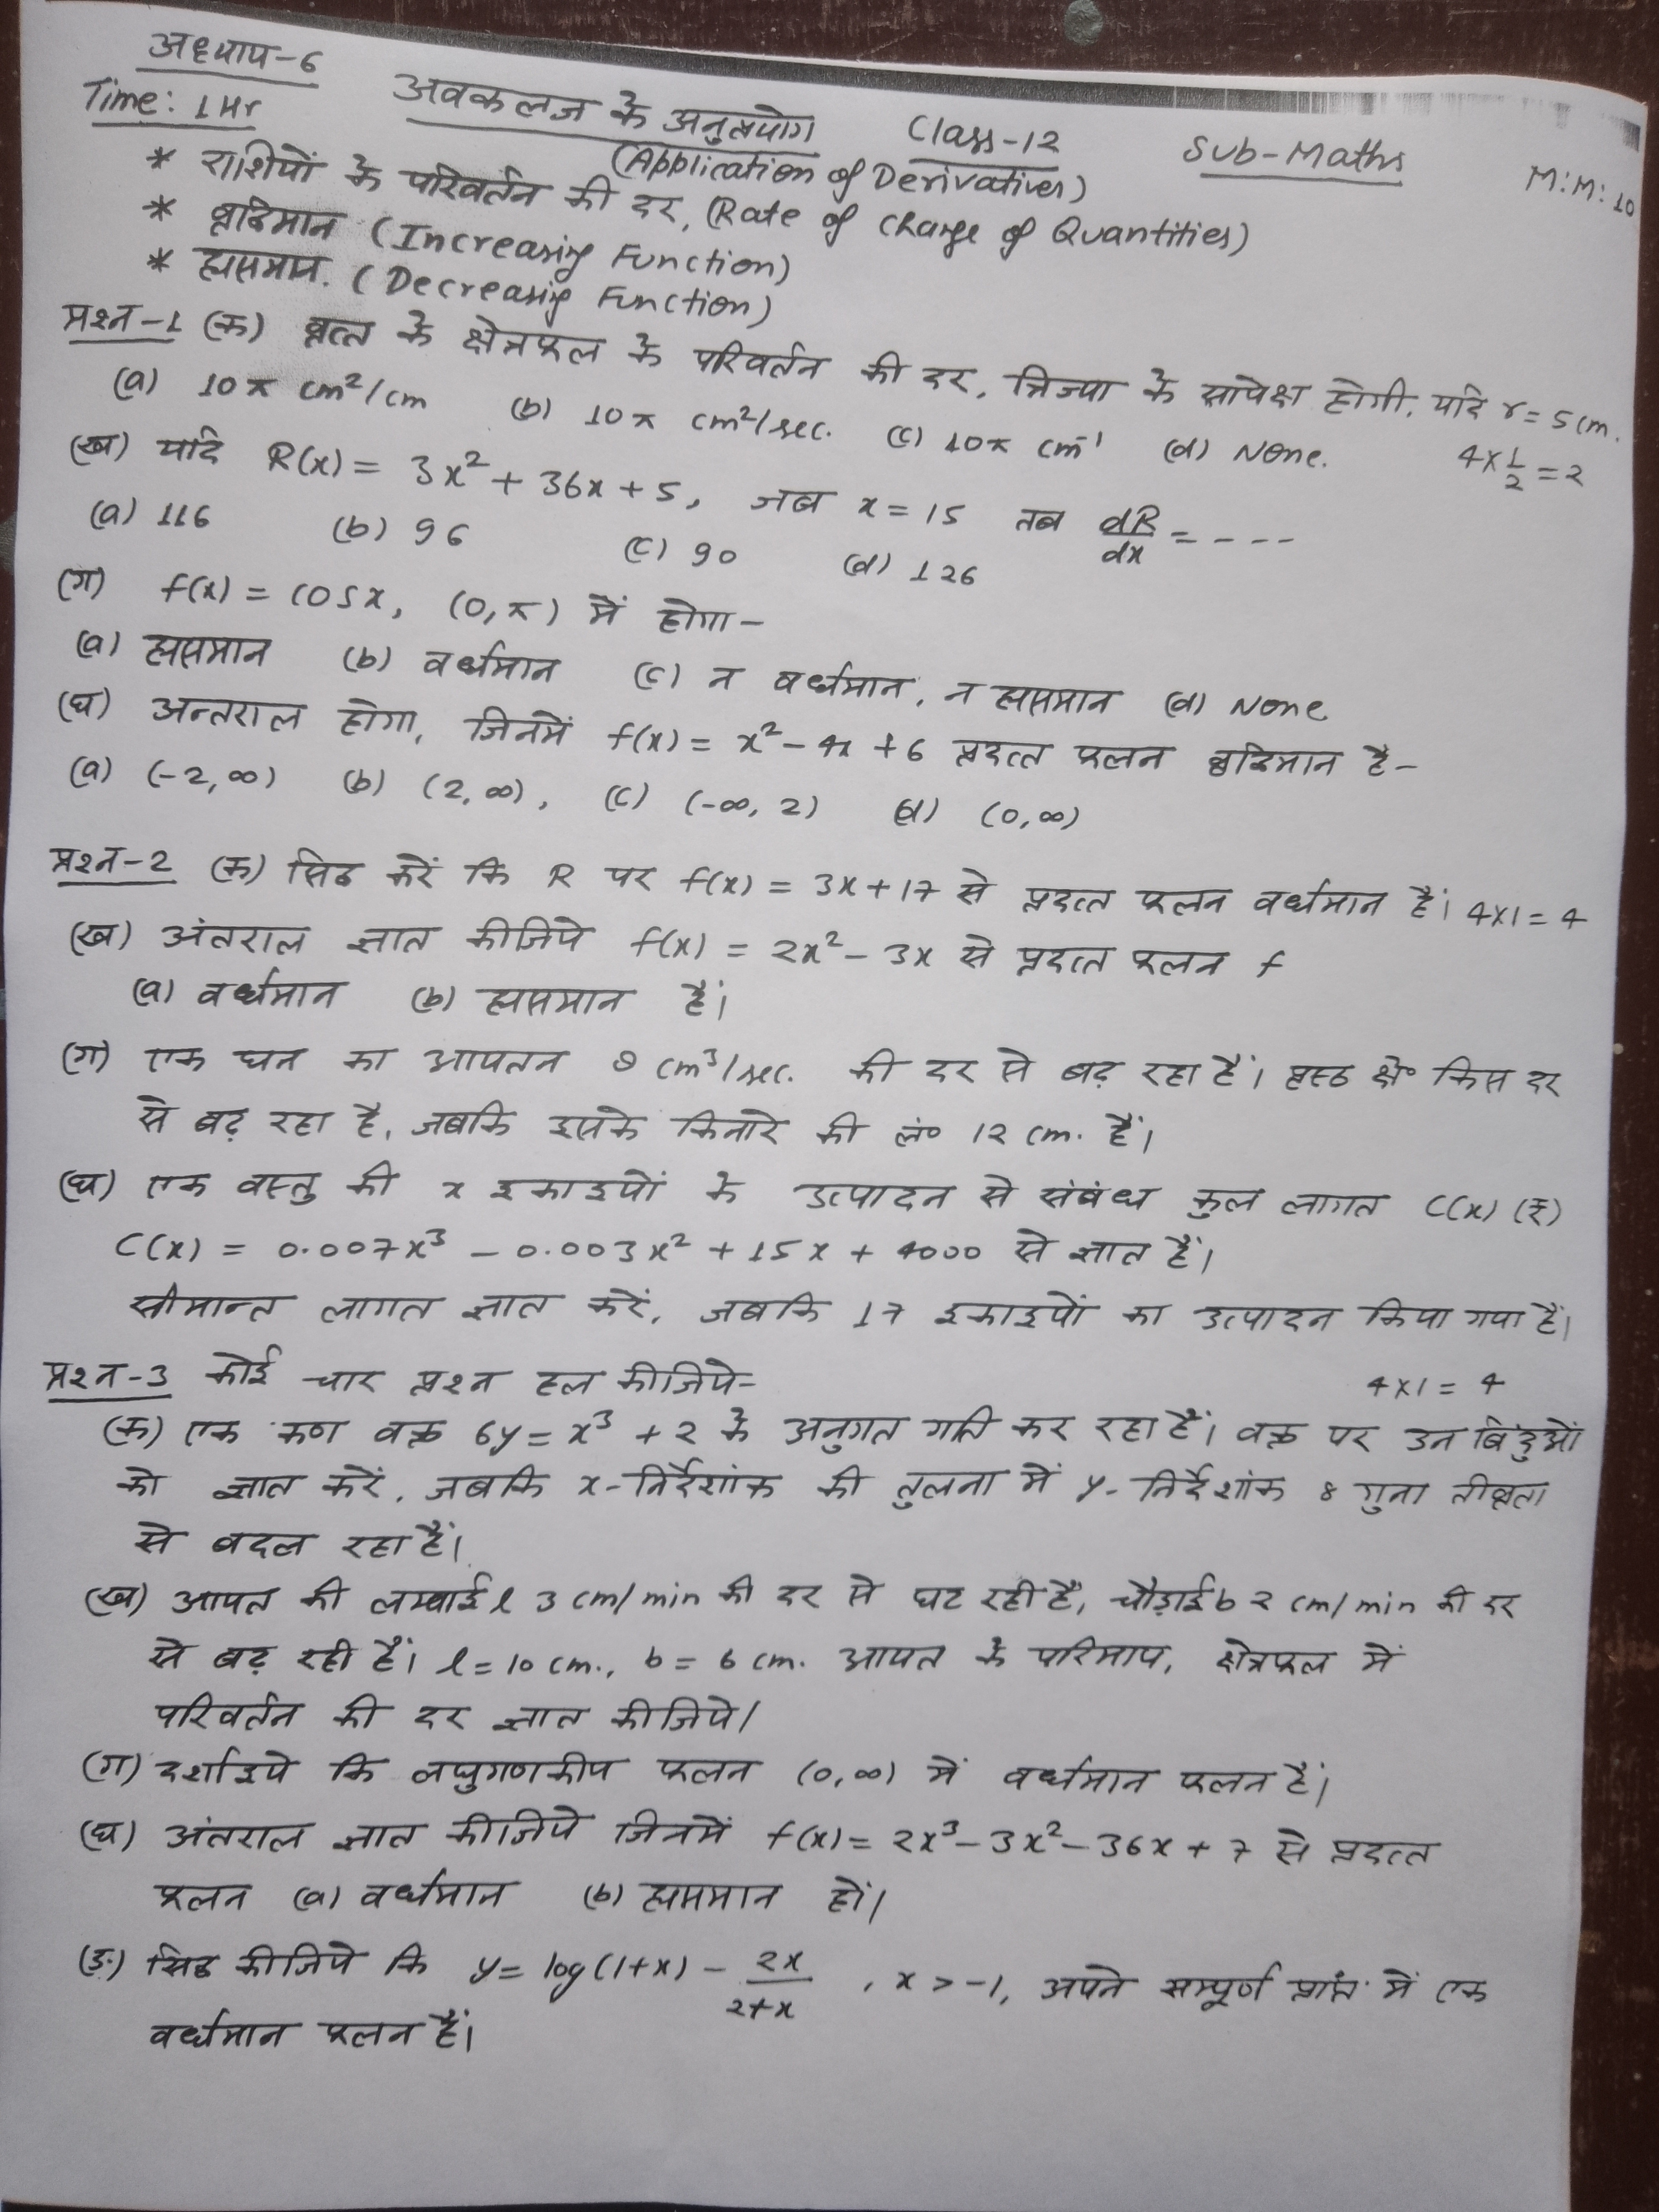 अध्याय-6
Time: 1 Hr
अवकलज के अनुप्रयोग Class-12 Sub-Maths M:M: 10
(Application of Derivatives)
* राशियों के परिवर्तन की दर, (Rate of Change of Quantities)
* वृद्धिमान (Increasing Function)
* ह्रासमान. (Decreasing Function)
प्रश्न-1 (क) वृत्त के क्षेत्रफल के परिवर्तन की दर, त्रिज्या के सापेक्ष होगी, यदि r = 5 cm.
(a) 10π cm²/cm (b) 10π cm²/sec. (c) 10π cm⁻¹ (d) None. 4×1/2=2
(ख) यदि R(x) = 3x² + 36x + 5, जब x = 15 तब dR/dx = ----
(a) 116 (b) 96 (c) 90 (d) 126
(ग) f(x) = cosx, (0, π) में होगा-
(a) ह्रासमान (b) वर्धमान (c) न वर्धमान, न ह्रासमान (d) None
(घ) अन्तराल होगा, जिनमें f(x) = x² - 4x + 6 प्रदत्त फलन वृद्धिमान है-
(a) (-2, ∞) (b) (2, ∞), (c) (-∞, 2) (d) (0, ∞)
प्रश्न-2 (क) सिद्ध करें कि R पर f(x) = 3x + 17 से प्रदत्त फलन वर्धमान है। 4×1=4
(ख) अंतराल ज्ञात कीजिये f(x) = 2x² - 3x से प्रदत्त फलन f
(a) वर्धमान (b) ह्रासमान है।
(ग) एक घन का आयतन cm³/sec. की दर से बढ़ रहा है। पृष्ठ क्षे॰ किस दर
से बढ़ रहा है, जबकि इसके किनारे की लं॰ 12 cm. है।
(घ) एक वस्तु की x इकाइयों के उत्पादन से संबंध कुल लागत C(x) (₹)
C(x) = 0.007x³ - 0.003x² + 15x + 4000 से ज्ञात है।
सीमान्त लागत ज्ञात करें, जबकि 17 इकाइयों का उत्पादन किया गया है।
प्रश्न-3 कोई चार प्रश्न हल कीजिये- 4×1=4
(क) एक कण वक्र 6y = x³ + 2 के अनुगत गति कर रहा है। वक्र पर उन बिंदुओं
को ज्ञात करें, जबकि x-निर्देशांक की तुलना में y-निर्देशांक 8 गुना तीव्रता
से बदल रहा है।
(ख) आयत की लम्बाई l 3 cm/min की दर से घट रही है, चौड़ाई b 2 cm/min की दर
से बढ़ रही है। l = 10 cm., b = 6 cm. आयत के परिमाप, क्षेत्रफल में
परिवर्तन की दर ज्ञात कीजिये।
(ग) दर्शाइये कि लघुगणकीय फलन (0, ∞) में वर्धमान फलन है।
(घ) अंतराल ज्ञात कीजिये जिनमें f(x) = 2x³ - 3x² - 36x + 7 से प्रदत्त
फलन (a) वर्धमान (b) ह्रासमान हो।
(ङ) सिद्ध कीजिये कि y = log(1+x) - 2x/2+x , x > -1, अपने सम्पूर्ण प्रांत में एक
वर्धमान फलन है।